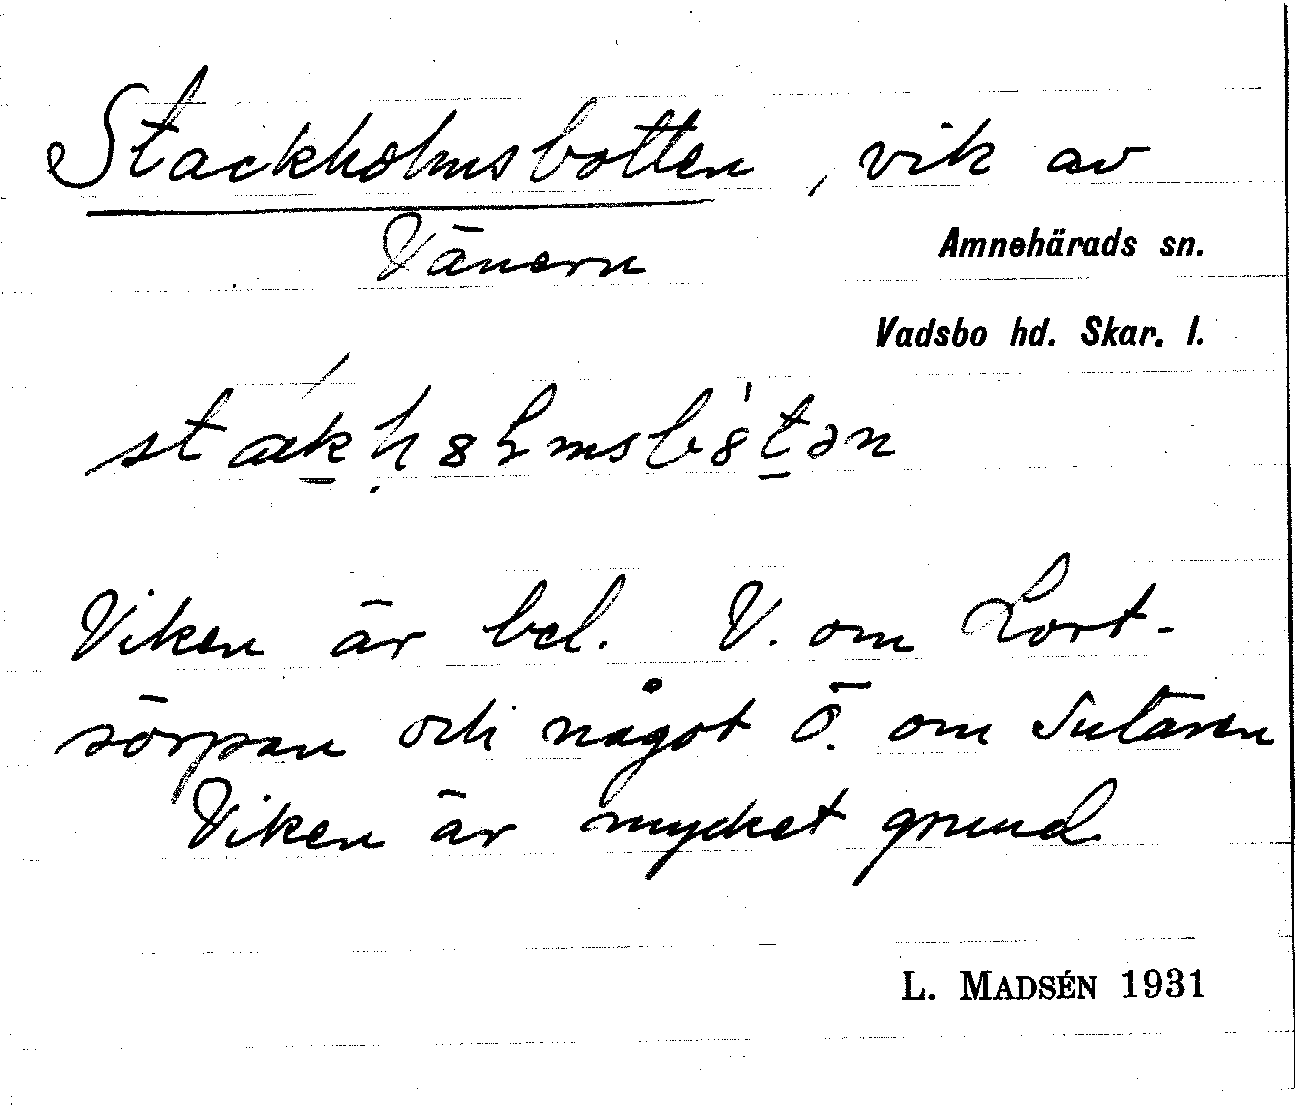 Stackholmsbotten, vik av
Vänern
Amnehärads sn.
Vadsbo hd. Skar. l.
Viken är bel. V. om Lort-
sörpan och något Ö. om Sutaren
Viken är mycket grund
L. MADSÉN 1931